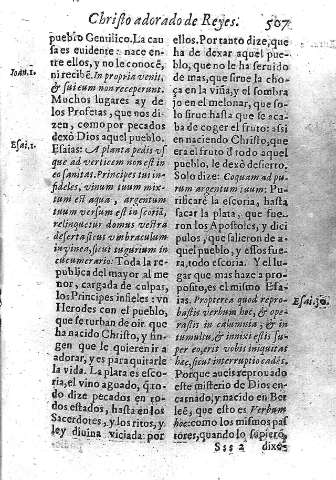 Christo adorado de Reyes. 507
pueblo Gentilico. La cau
sa es euidente: nace en-
tre ellos, y no le conocẽ,
Ioan.1. ni recibẽ. In propria venit,
& sui eum non receperunt.
Muchos lugares ay de
los Profetas, que nos di-
zen, como por pecados
dexò Dios aquel pueblo.
Esai.1. Esaias: A planta pedis vs
que ad verticem non est in
eo sanitas. Principes tui in-
fideles, vinum tuum mix-
tum est aqua, argentum
tuum versum est in scoriã,
relinquetur domus vestra
deserta sicut vmbraculum
in vinea, sicut tugurium in
cucumerario. Toda la re-
publica del mayor al me
nor, cargada de culpas,
los Principes infieles; vn
Herodes con el pueblo,
que se turban de oir que
ha nacido Christo, y fin-
gen que le quieren ir a
adorar, y es para quitarle
la vida. La plata es esco-
ria, el vino aguado, q̃ to-
do dize pecados en to-
dos estados, hasta en los
Sacerdotes, y los ritos, y
ley diuina viciada por
ellos. Por tanto dize, que
ha de dexar aquel pue-
blo, que no le ha seruido
de mas, que sirue la cho-
ça en la viña, y el sombra
jo en el melonar, que so-
lo sirue hasta que se aca-
ba de coger el fruto: assi
en naciendo Christo, que
era el fruto d̃ todo aquel
pueblo, le dexò desierto.
Solo dize: Coquam ad pu-
rum argentum tuum: Pu-
rificarè la escoria, hasta
sacar la plata, que fue-
ron los Apostoles, y dici
pulos, que salieron de a-
quel pueblo, y essos fue-
ra, todo escoria. Y el lu-
gar que mas haze a pro-
posito, es el mismo Esa
Esai.30. ias. Propterea quod repro-
bastis verbum hoc, & ope-
rastis in calumnia, & in
tumultu, & innixi estis su-
per eo, erit vobis iniquitas
hæc, sicut interruptio cadẽs.
Porque aueis reprouado
este misterio de Dios en-
carnado, y nacido en Bet
leẽ, que esto es Verbum
hoc: como los mismos pas
tores, quando lo supierõ,
Sss 2 dixe-